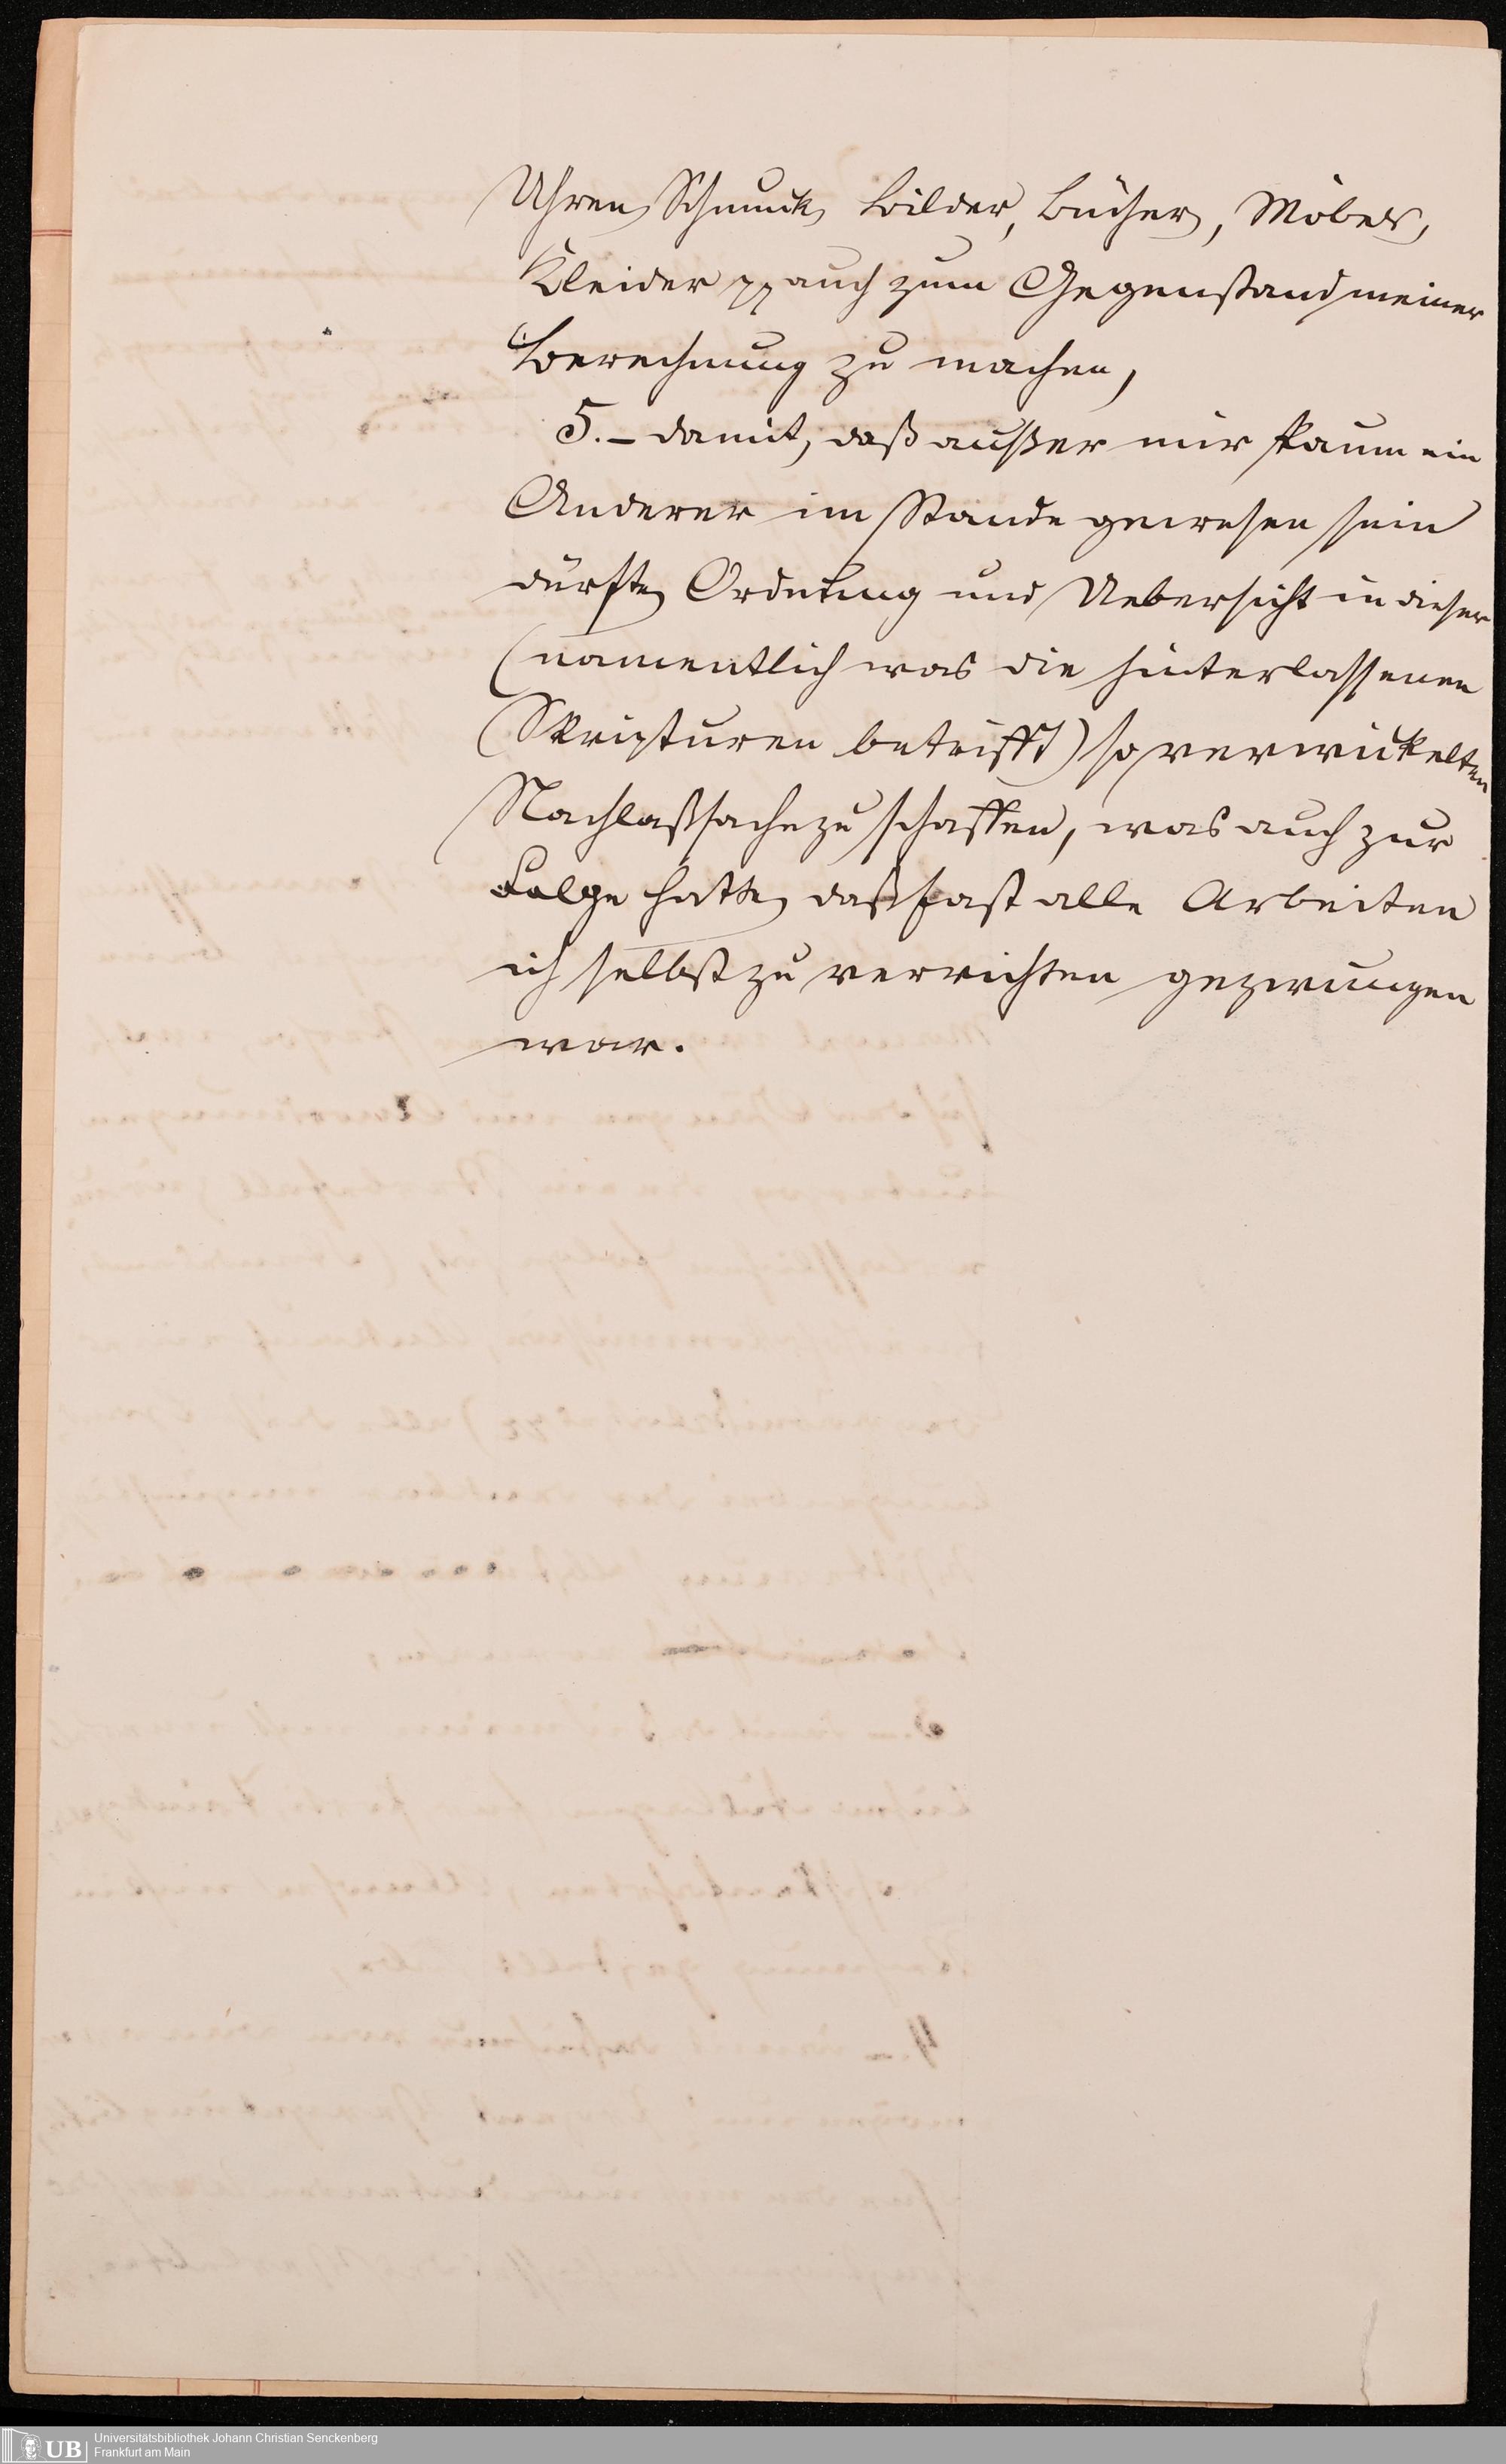 Uhren, Schmuck, Bilder, Bücher, Möbel,
Kleider pp auch zum Gegenstand meiner
Berechnung zu machen,
5. – damit, daß außer mir kaum ein
Anderer im Stande gewesen sein
dürfte, Ordnung und Uebersicht in dieser
(namentlich was die hinterlassenen
Skripturen betrifft) so verwickelten
Nachlaßsache zu schaffen, was auch zur
Folge hatte, daß fast alle Arbeiten
ich selbst zu verrichten gezwungen
war.
UB
Universitätsbibliothek Johann Christian Senckenberg
Frankfurt am Main